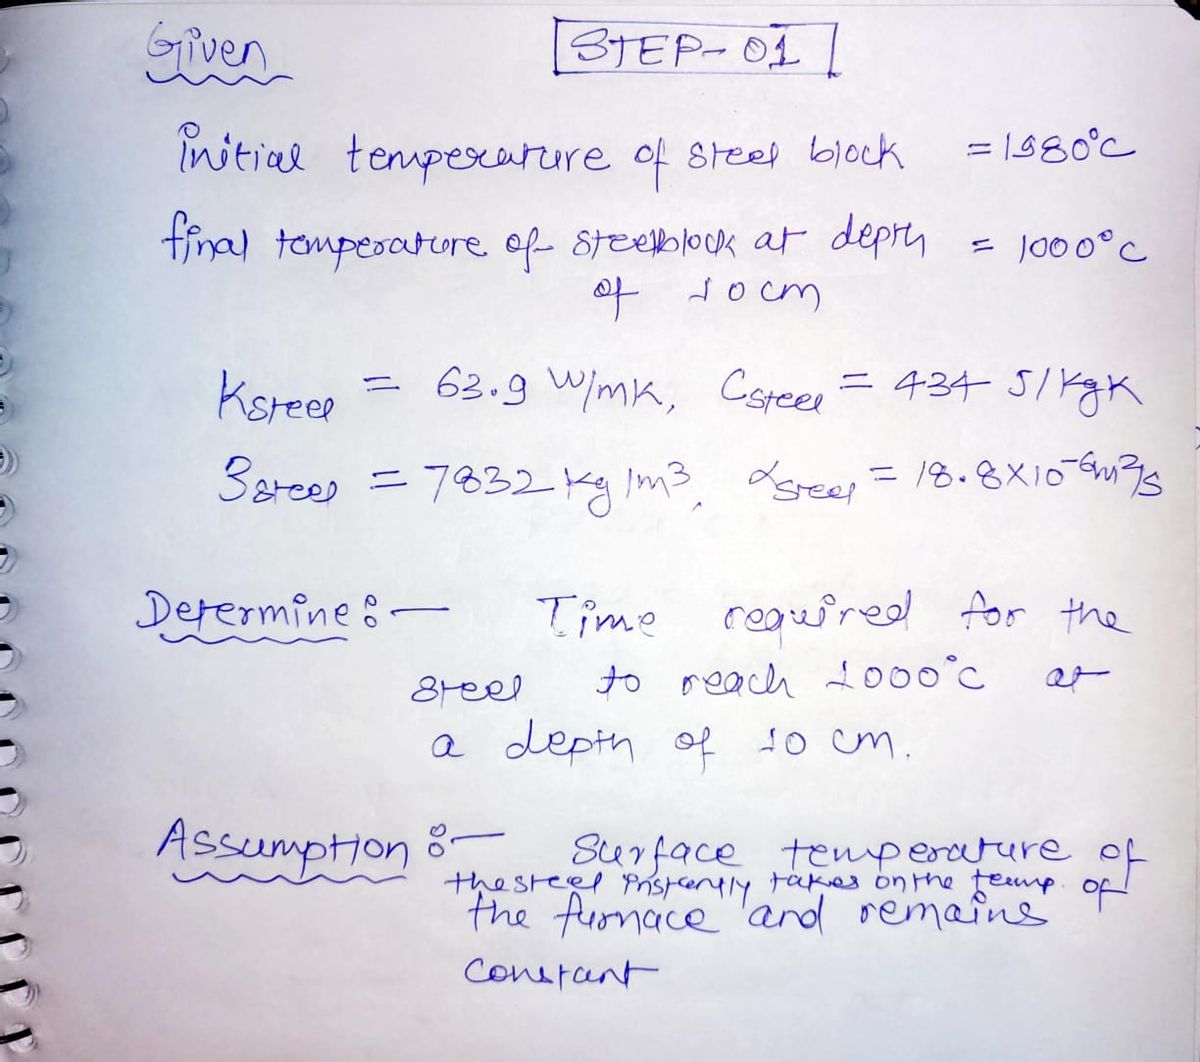 Given
STEP-01
initial temperature of steel block = 1980°C
final temperature of steelblock at depth = 1000°C
of 10 cm
Ksteel = 63.9 W/mK, Csteel = 434 J/kgK
Ssteel = 7832 kg/m³, αsteel = 18.8×10⁻⁶m²/s
Determine:— Time required for the
steel to reach 1000°C at
a depth of 10 cm.
Assumption:— Surface temperature of
the steel instantly takes on the temp. of
the furnace and remains
constant